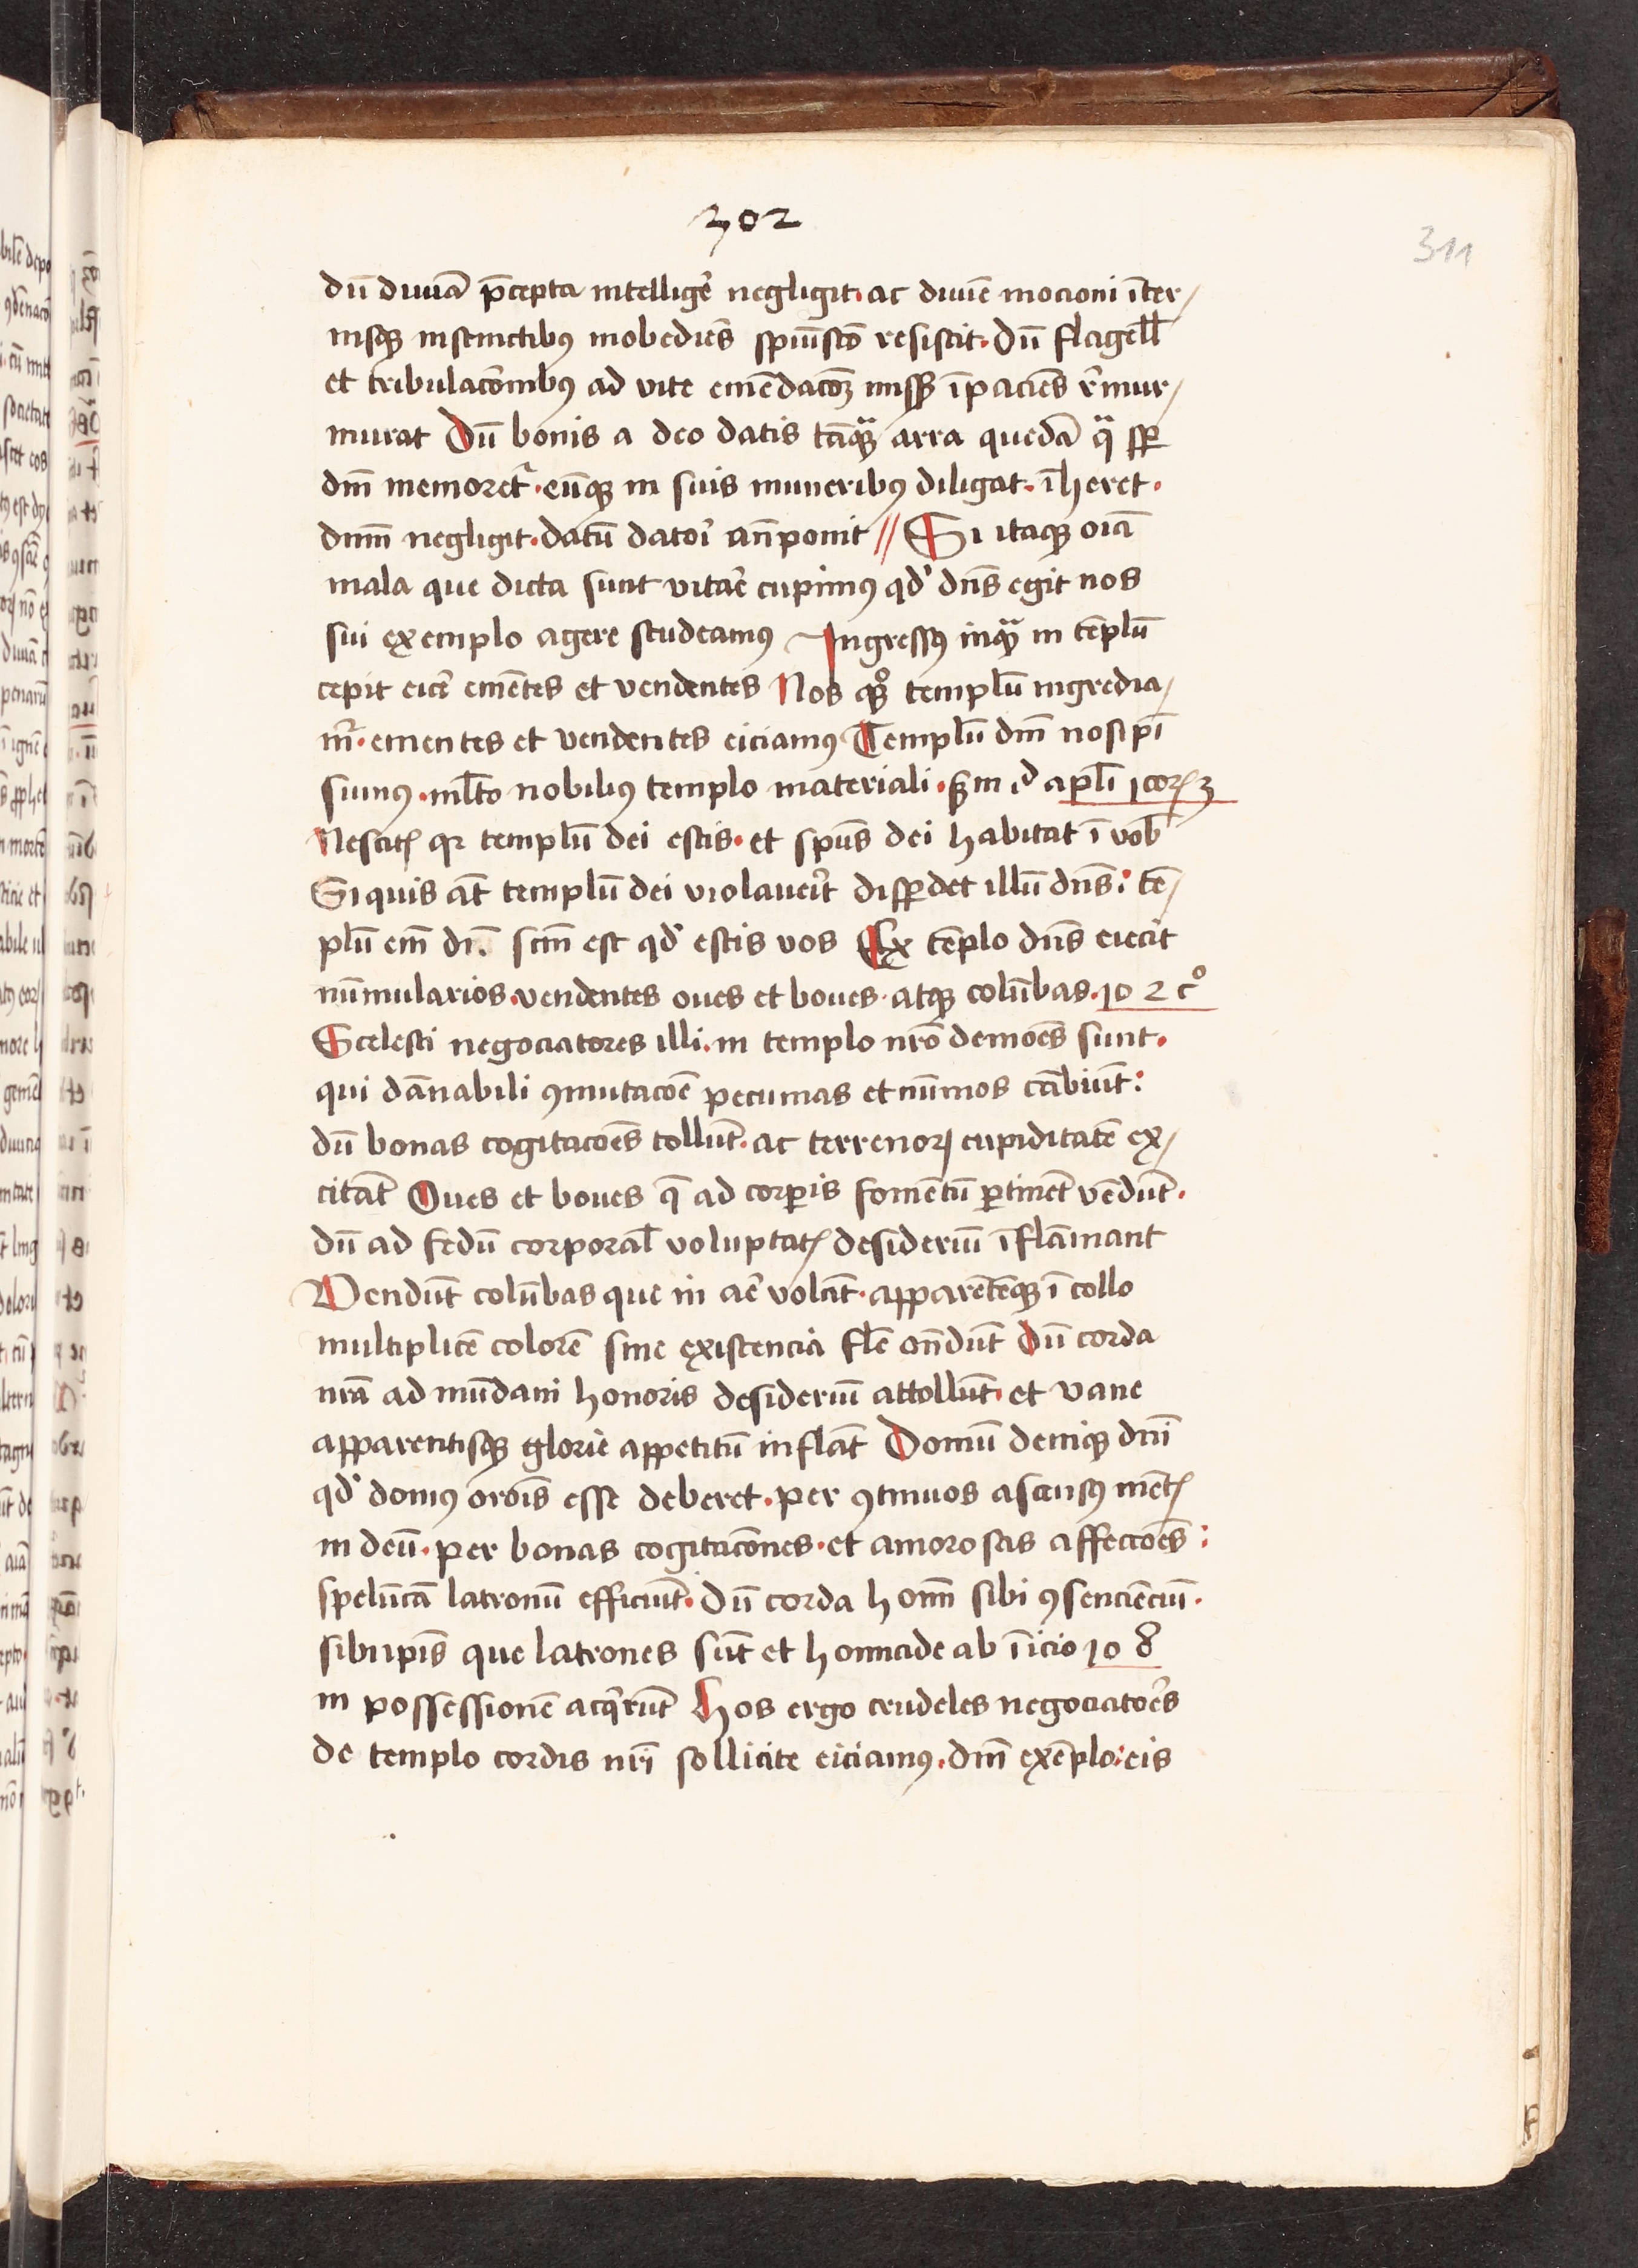 302
311
dū diuinā p̄cepta intelligẽ negligit· ac diuīe mocioni īter/
nisqꝫ instinctibꝰ inobediēs spiūscō resistit· dū flagell̄
et tribulacōnibꝰ ad vite emēdacōꝫ missis īpaciēs r̄mur/
murat Dū bonis a deo datis tāqꝫ arra quedā q̄ sꝑ
dn̄i memoret᷑· eūqꝫ in suis muneribꝰ diligat· īheret·
dn̄m negligit· datū datoī an̄ponit // Si itaqꝫ oīa
mala que dicta sunt vitar̄e cupimꝰ qd̓ dn̄s egit nos
sui exemplo agere studeamꝰ Ingressꝰ inqͣꝫ in tēplū
cepit eicẽ emētes et vendentes Nos qꝫͦ templū ingredia/
mr̄· ementes et vendentes eiciamꝰ Templū dn̄i nosipī
sumꝰ· ml̄to nobiliꝰ templo materiali· ẜm id apl̄i 1 corꝝ 3
Nescitꝭ qꝛ templū dei estis· et spūs dei habitat ī vob̄
Si quis aūt templū dei violaueīt disꝑdet illū dn̄s: tē/
plū em̄ dn̄i scm̄ est qd̓ estis vos Ex tēplo dn̄s eiecit
nūmularios· vendentes oues et boues· atqꝫ colūbas· Jo 2 cͦ
Scelesti negociatores illi· in templo nr̄o demoēs sunt·
qui dānabili ꝯmutacōe pecunias et nūmos cābiūt:
dū bonas cogitacōes tollūt· ac terrenoꝝ cupiditatē ex/
citāt Oues et boues q̄ ad corꝑis fomētū ꝑtinēt vēdūt·
dū ad fedū corporal̄ voluptatꝭ desideriū īflāmant
Vendūt colūbas que in aē̓ volāt· apparētēqꝫ ī collo
multiplicē colorē sine existencia fl̄e on̄dūt Dū corda
nr̄a ad mūdani honoris desideriū attollūt· et vane
apparentisqꝫ glorie appetitū inflāt Domū deniqꝫ dn̄i
qd̓ domꝰ orōis esse deberet· per ꝯtinuos ascensꝰ mētꝭ
in deū· per bonas cogitacōnes· et amorosas affectōes:
spelūcā latronū efficiūt· dū corda hoīm sibi ꝯsenciēciū·
sibiipīs que latrones sūt et homicide ab īicio Jo 8
in possessionē acqͥrūt Hos ergo crudeles negociatoēs
de templo cordis nr̄i sollicite eiciamꝰ· dn̄i exēplo: eis